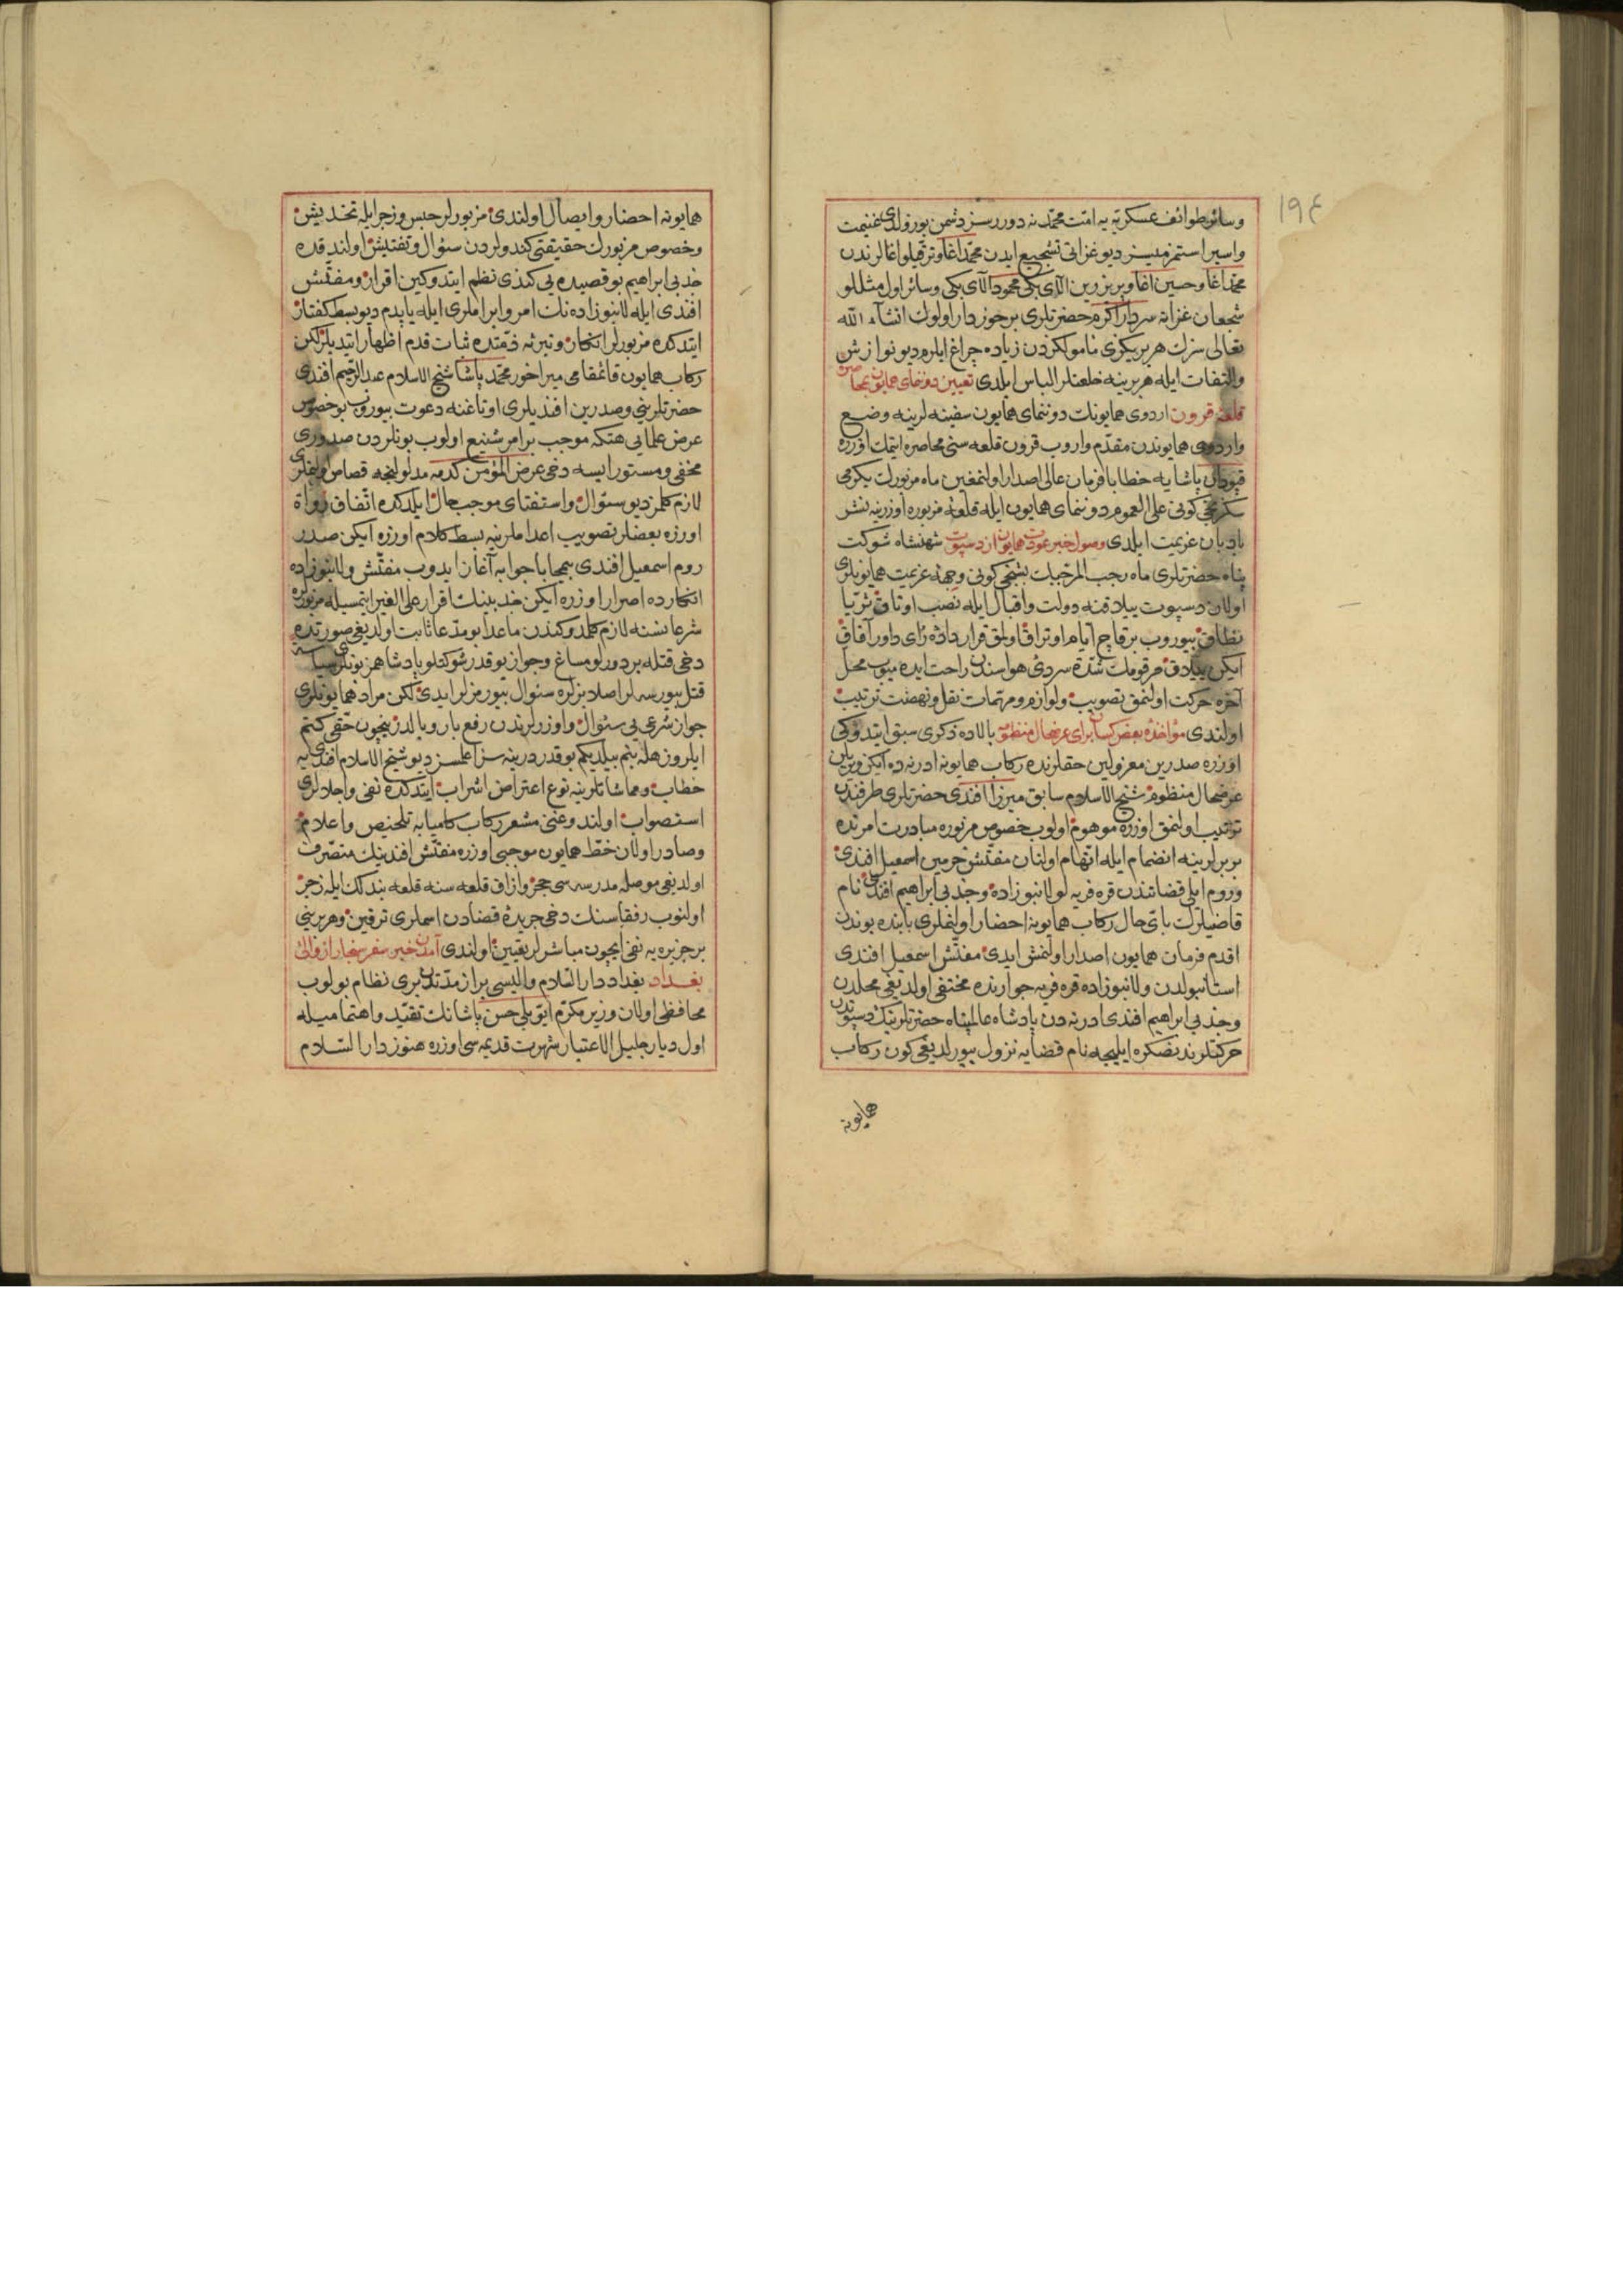 ١٩٤
وسائر طوائف عسكريّه يه امّت محمّد نه دوررسز دشمن بوزولدى غنيمت
واسير استمزميسز ديو غزايى تشجيع ايدن محمّد اغا وترقيلو اغالرندن
محمّد اغا وحسين اغا وپريزرين الاى بكى محمود الاى بكى وسائر اول مثللو
شجعان غزاته سردار اكرم حضرتلرى برخوردار اولوك انشاء الله
تعالى سزك هر بريكزى مأمولكزدن زياده چراغ ايلرم ديو نوازش
والتفات ايله هر برينه خلعتلر الباس ايلدى تعيين دوننماى همايون بمحاصره
قلعهٔ قرون اردوى همايونك دوننماى همايون سفينه لرينه وضع
واردوى همايوندن مقدّم واروب قرون قلعه سنى محاصره ايتمك اوزره
قپودان پاشايه خطابا فرمان عالى اصدار اولنمغين ماه مزبورك يكرمى
سكزنجى كونى على العموم دوننماى همايون ايله قلعهٔ مزبوره اوزرينه نشر
بادبان عزيمت ايلدى وصول خبر عودت همايون از دسپوت شهنشاه شوكت
پناه حضرتلرى ماه رجب المرجّبك بشنجى كونى وجههٔ عزيمت همايونلرى
اولان دسپوت ييلاقنه دولت واقبال ايله نصب اوتاق ثريّا
نطاق بيوروب برقاچ ايّام اوتراق اولمق قرارداده راى داور آفاق
ايكن ييلاق مرقومك شدّت سردئ هواسندن راحت ايده ميوب محلّ
آخره حركت اولنمق تصويب ولوازم ومهمّات نقل ونهضت ترتيب
اولندى مؤاخذهٔ بعض كسان براى عرضحال منظوم بالاده ذكرى سبق ايتدوكى
اوزره صدرين معزولين حقلرنده ركاب همايونه ادرنه ده ايكن ويريلن
عرضحال منظوم شيخ الاسلام سابق ميرزا افندى حضرتلرى طرفندن
ترتيب اولنمق اوزره موهوم اولوب خصوص مزبوره مبادرت امرنده
بربرلرينه انضمام ايله اتّهام اولنان مفتّش حرمين اسمعيل افندى
وروم ايلى قضاتندن قره فريه لو لانبوززاده وجذبى ابراهيم افندى نام
قاضيلرك باىّ حال ركاب همايونه احضار اولنملرى بابنده بوندن
اقدم فرمان همايون اصدار اولنمش ايدى مفتّش اسمعيل افندى
استانبولدن ولانبوززاده قره فريه جوارنده مختفى اولديغى محلدن
وجذبى ابراهيم افندى ادرنه دن پادشاه عالمپناه حضرتلرينك دسپوتدن
حركتلرندنصكره ايليجه نام قضايه نزول بيورلديغى كون ركاب
همايونه
همايونه احضار وايصال اولندى مزبورلر حبس وزجر ايله تخديش
وخصوص مزبورك حقيقتى كندولردن سئوال وتفتيش اولندقده
جذبى ابراهيم بو قصيده يى كندى نظم ايتدوكين اقرار ومفتّش
افندى ايله لانبوززاده نك امر وابراملرى ايله ياپدم ديو بسط كفتار
ايتدكده مزبورلر انكار وتبرئه ذمّتده ثبات قدم اظهار ايتديلر لكن
ركاب همايون قائمقامى ميراخور محمّد پاشا شيخ الاسلام عبد الرّحيم افندى
حضرتلرينى وصدرين افنديلرى اوتاغنه دعوت بيوروب بو خصوص
عرض علمايى هتكه موجب بر امر شنيع اولوب بونلردن صدورى
مخفى ومستور ايسه دخى عرض المؤمن كدمه مدلولنجه قصاص اولنملرى
لازم كلمز ديو سئوال واستفتاى موجب حال ايلدكده اتّفاق رواة
اوزره بعضلر تصويب اعداملرينه بسط كلام اوزره ايكن صدر
روم اسمعيل افندى بيمحابا جوابه آغاز ايدوب مفتّش ولانبوززاده
انكارده اصرار اوزره ايكن جذبينك اقرار على الغير ايتمسيله مزبورلره
شرعا نسنه لازم كلمدوكندن ماعدا بو مدّعا ثابت اولديغى صورتده
دخى قتله بر دورلو مساغ وجواز يوقدر شوكتلو پادشاهمز بونلرى سياسة
قتل بيورسه لر اصلا بزلره سئوال بيورمزلر ايدى لكن مراد همايونلرى
جواز شرعى يى سئوال واوزرلرندن رفع بار وبالدر نيچون حقّى كتم
ايلروز هله بنم بيلديكم بو قدردر ينه سز اعلمسز ديو شيخ الاسلام افندى يه
خطاب ومماشاتلرينه نوع اعتراض اشراب ايتدكده نفى واجلالرى
استصواب اولندوغنى مشعر ركاب كاميابه تلخيص واعلام
وصادر اولان خطّ همايون موجبى اوزره مفتّش افندينك متصرّف
اولديغى موصله مدرسه سى حجز وازاق قلعه سنه قلعه بندلك ايله زجر
اولنوب رفقاسنك دخى جريدهٔ قضادن اسملرى ترقين وهر برينى
بر جزيره يه نفى ايچون مباشرلر تعيين اولندى آمدن خبر سفر سنجار از والئ
بغداد بغداد دار السّلام واليسى براز مدّتدنبرى نظام بولوب
محافظى اولان وزير مكرّم ايوبلى حسن پاشانك تقيّد واهتماميله
اول ديار جليل الاعتبار شهرت قديمه سى اوزره هنوز دار السّلام